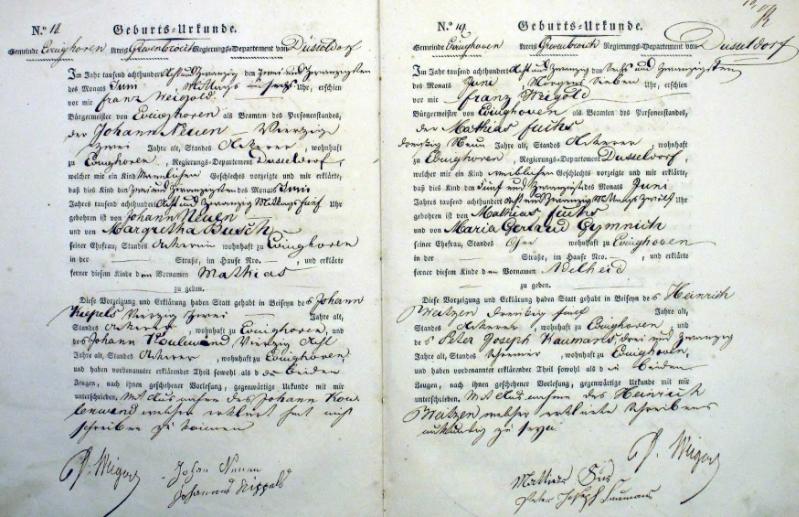 N.º 18 Geburts-Urkunde.
Gemeinde Evinghoven Kreis Grevenbroich Regierungs-Departement von Düsseldorf
Im Jahr tausend achthundert Acht und Zwanzig den Zwei und Zwanzigsten
des Monats Juni Mittags Uhr, erschien
vor mir Franz Weigold
Bürgermeister von Evinghoven als Beamten des Personenstandes,
der Johann Neuen Vierzig
zwei Jahre alt, Standes Ackerer, wohnhaft
zu Evinghoven, Regierungs-Departement Dusseldorf,
welcher mir ein Kind Männlichen Geschlechts vorzeigte und mir erklärte,
daß dies Kind den Zwei und Zwanzigsten des Monats Juni
Jahres tausend achthundert Acht und Zwanzig Mittags fünf Uhr
gebohren ist von Johann Neuen
und von Margretha Busch
seiner Ehefrau, Standes Ackerin wohnhaft zu Evinghoven
in der — Straße, im Hause Nro. — , und erklärte
ferner diesem Kinde den Vornamen Mathias
zu geben.
Diese Vorzeigung und Erklärung haben Statt gehabt in Beiseyn des Johann
Vierzig Zwei Jahre alt,
Standes Ackerer, wohnhaft zu Evinghoven, und
des Johann Vierzig Acht
Jahre alt, Standes Ackerer, wohnhaft zu Evinghoven,
und haben vorbenannter erklärender Theil sowohl als die beiden
Zeugen, nach ihnen geschehener Vorlesung, gegenwärtige Urkunde mit mir
unterschrieben. Mit Ausnahme des Johann
welcher erklärt hat nicht
schreiben zu können
Johan Neuen
Johannes
N.º 19 Geburts-Urkunde.
Gemeinde Evinghoven Kreis Grevenbroich Regierungs-Departement von Düsseldorf
Im Jahr tausend achthundert Acht und Zwanzig den Sechs und Zwanzigsten
des Monats Juni, Morgens Sieben Uhr, erschien
vor mir Franz Weigold
Bürgermeister von Evinghoven als Beamten des Personenstandes,
der Mathias Fuchs
dreißig Neun Jahre alt, Standes Ackerer, wohnhaft
zu Evinghoven, Regierungs-Departement Dusseldorf,
welcher mir ein Kind weiblichen Geschlechts vorzeigte und mir erklärte,
daß dies Kind den Fünf und Zwanzigsten des Monats Juni
Jahres tausend achthundert Acht und Zwanzig Mittags Zwölf Uhr
gebohren ist von Mathias Fuchs
und von Maria Gertrud Gymnich
seiner Ehefrau, Standes wohnhaft zu Evinghoven
in der — Straße, im Hause Nro. — , und erklärte
ferner diesem Kinde den Vornamen Adelheid
zu geben.
Diese Vorzeigung und Erklärung haben Statt gehabt in Beiseyn des Heinrich
dreißig fünf Jahre alt,
Standes Ackerer, wohnhaft zu Evinghoven, und
des Peter Joseph drei und zwanzig
Jahre alt, Standes, wohnhaft zu Evinghoven,
und haben vorbenannter erklärender Theil sowohl als die beiden
Zeugen, nach ihnen geschehener Vorlesung, gegenwärtige Urkunde mit mir
unterschrieben. Mit Ausnahme des Heinrich
welcher erklärte Schreibens
zu seyn
Peter Joseph